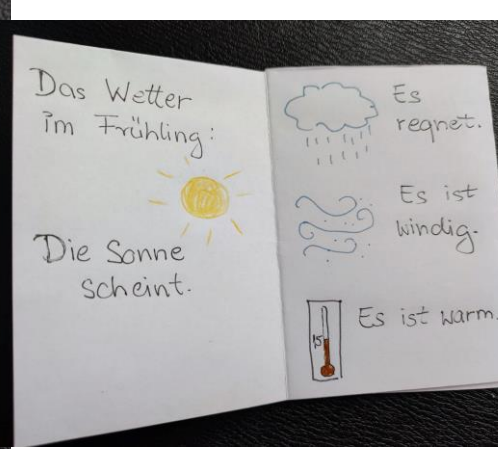 Das Wetter
im Frühling:
Die Sonne
scheint.
Es
regnet.
Es ist
windig.
15
Es ist warm.